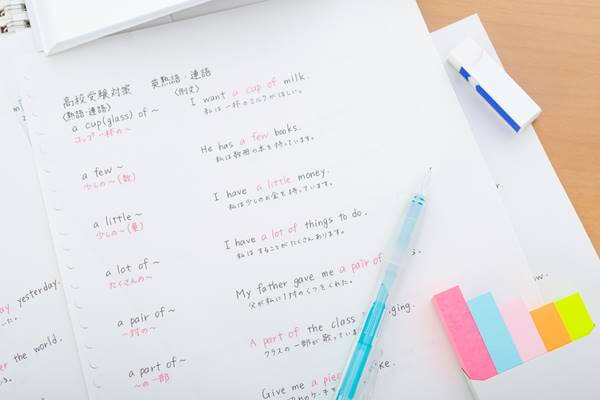 高校受験対策 英熟語・連語
(熟語・連語) (例文)
a cup(glass) of ~
コップ一杯の~
I want a cup of milk.
私は一杯のミルクがほしい。
a few ~
少しの~(数)
He has a few books.
私は数冊の本を持っています。
a little ~
少しの~(量)
I have a little money.
私は少しのお金を持っています。
a lot of ~
たくさんの~
I have a lot of things to do.
私はすることがたくさんあります。
a pair of ~
一対の~
My father gave me a pair of
父が私に1対のくつをくれた。
a part of ~
~の一部
A part of the class
クラスの一部が歌ってい
Give me a pie
yesterday.
the world.